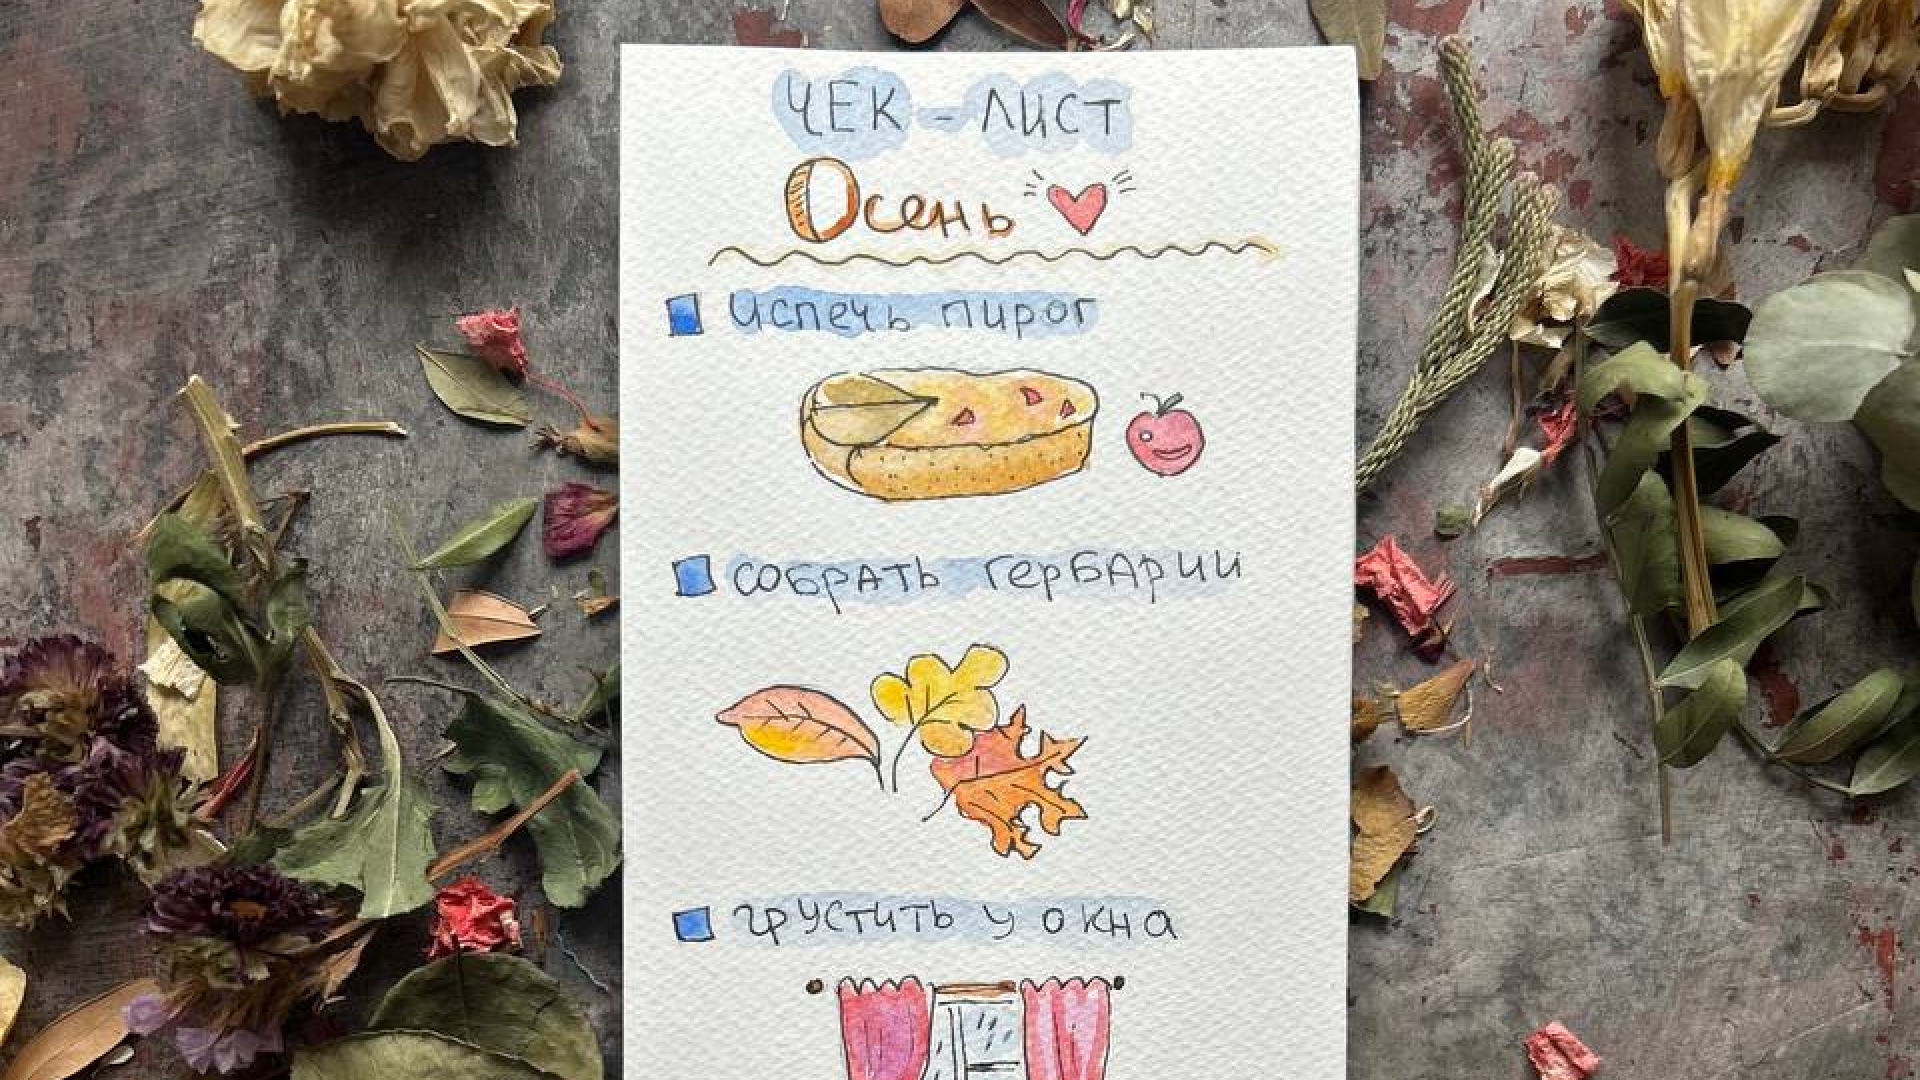 ЧЕК-ЛИСТ
Осень
испечь пирог
СОБРАТЬ ГерБАрии
грустить у окна